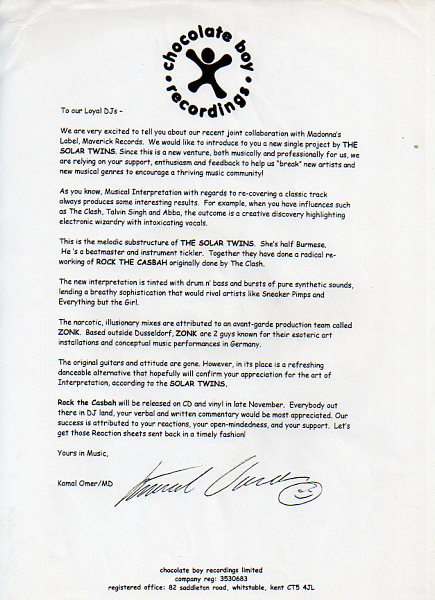 chocolate boy
recordings
To our Loyal DJs -
We are very excited to tell you about our recent joint collaboration with Madonna's
Label, Maverick Records. We would like to introduce to you a new single project by THE
SOLAR TWINS. Since this is a new venture, both musically and professionally for us, we
are relying on your support, enthusiasm and feedback to help us "break" new artists and
new musical genres to encourage a thriving music community!
As you know, Musical Interpretation with regards to re-covering a classic track
always produces some interesting results. For example, when you have influences such
as The Clash, Talvin Singh and Abba, the outcome is a creative discovery highlighting
electronic wizardry with intoxicating vocals.
This is the melodic substructure of THE SOLAR TWINS. She's half Burmese.
He 's a beatmaster and instrument tickler. Together they have done a radical re-
working of ROCK THE CASBAH originally done by The Clash.
The new interpretation is tinted with drum n' bass and bursts of pure synthetic sounds,
lending a breathy sophistication that would rival artists like Sneaker Pimps and
Everything but the Girl.
The narcotic, illusionary mixes are attributed to an avant-garde production team called
ZONK. Based outside Dusseldorf, ZONK are 2 guys known for their esoteric art
installations and conceptual music performances in Germany.
The original guitars and attitude are gone. However, in its place is a refreshing
danceable alternative that hopefully will confirm your appreciation for the art of
Interpretation, according to the SOLAR TWINS.
Rock the Casbah will be released on CD and vinyl in late November. Everybody out
there in DJ land, your verbal and written commentary would be most appreciated. Our
success is attributed to your reactions, your open-mindedness, and your support. Let's
get those Reaction sheets sent back in a timely fashion!
Yours in Music,
Kamal Omer/MD
chocolate boy recordings limited
company reg: 3530683
registered office: 82 saddleton road, whitstable, kent CT5 4JL